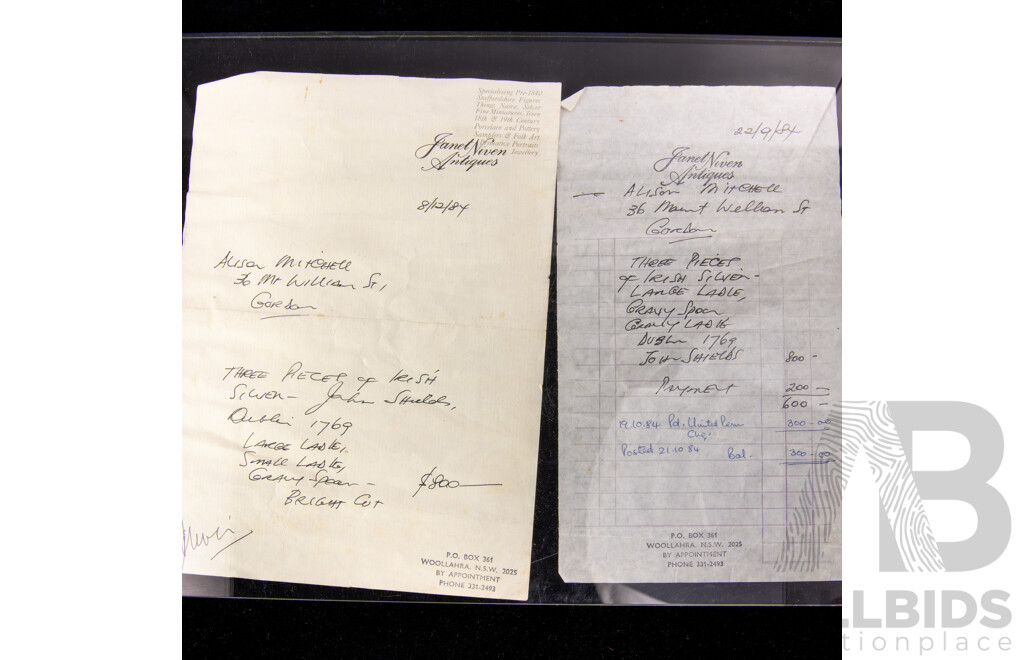 Specialising Pre-1840
Staffordshire Figures
18th & 19th Century
Porcelain and Pottery
Samplers & Folk Art
Portraits
Jewellery
Janet Niven
Antiques
8/12/84
ALISON MITCHELL
36 Mt William St,
Gordon
THREE PIECES of IRISH
SILVER - John Shields,
Dublin 1769
LARGE LADLE,
SMALL LADLE,
GRAVY SPOON -
$800 -
BRIGHT CUT
P.O. BOX 361
WOOLLAHRA. N.S.W. 2025
BY APPOINTMENT
PHONE 331-2493
22/9/84
Janet Niven
Antiques
ALISON MITCHELL
36 Mount William St
Gordon
THREE PIECES
of IRISH SILVER -
LARGE LADLE,
GRAVY SPOON
GRAVY LADLE
DUBLIN 1769
JOHN SHIELDS 800 -
PAYMENT 200 -
600 -
19.10.84 Pd. United Perm 300 - 00
Chq.
Posted 21.10.84 Bal. 300 - 00
P.O. BOX 361
WOOLLAHRA. N.S.W. 2025
BY APPOINTMENT
PHONE 331-2493
AB
ALLBIDS
auctionplace